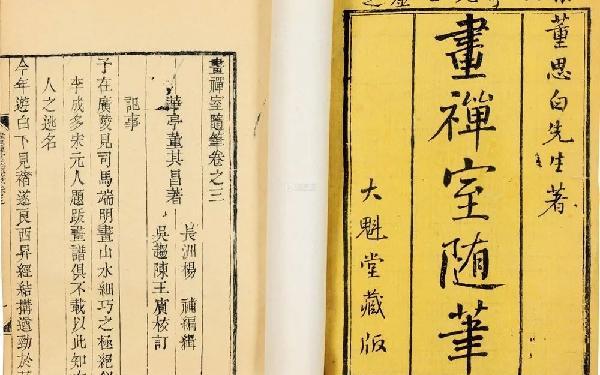 董思白先生著
畫禪室随筆
大魁堂藏版
畫禪室隨筆卷之三
華亭董其昌著
長洲楊 補編輯
吳趨陳王賓校訂
記事
予在廣陵見司馬端明畫山水細巧之極絕
李成多宋元人題跋畫譜俱不載以此知
人之逃名
今年遊白下見褚遂良西昇經結搆遒勁於